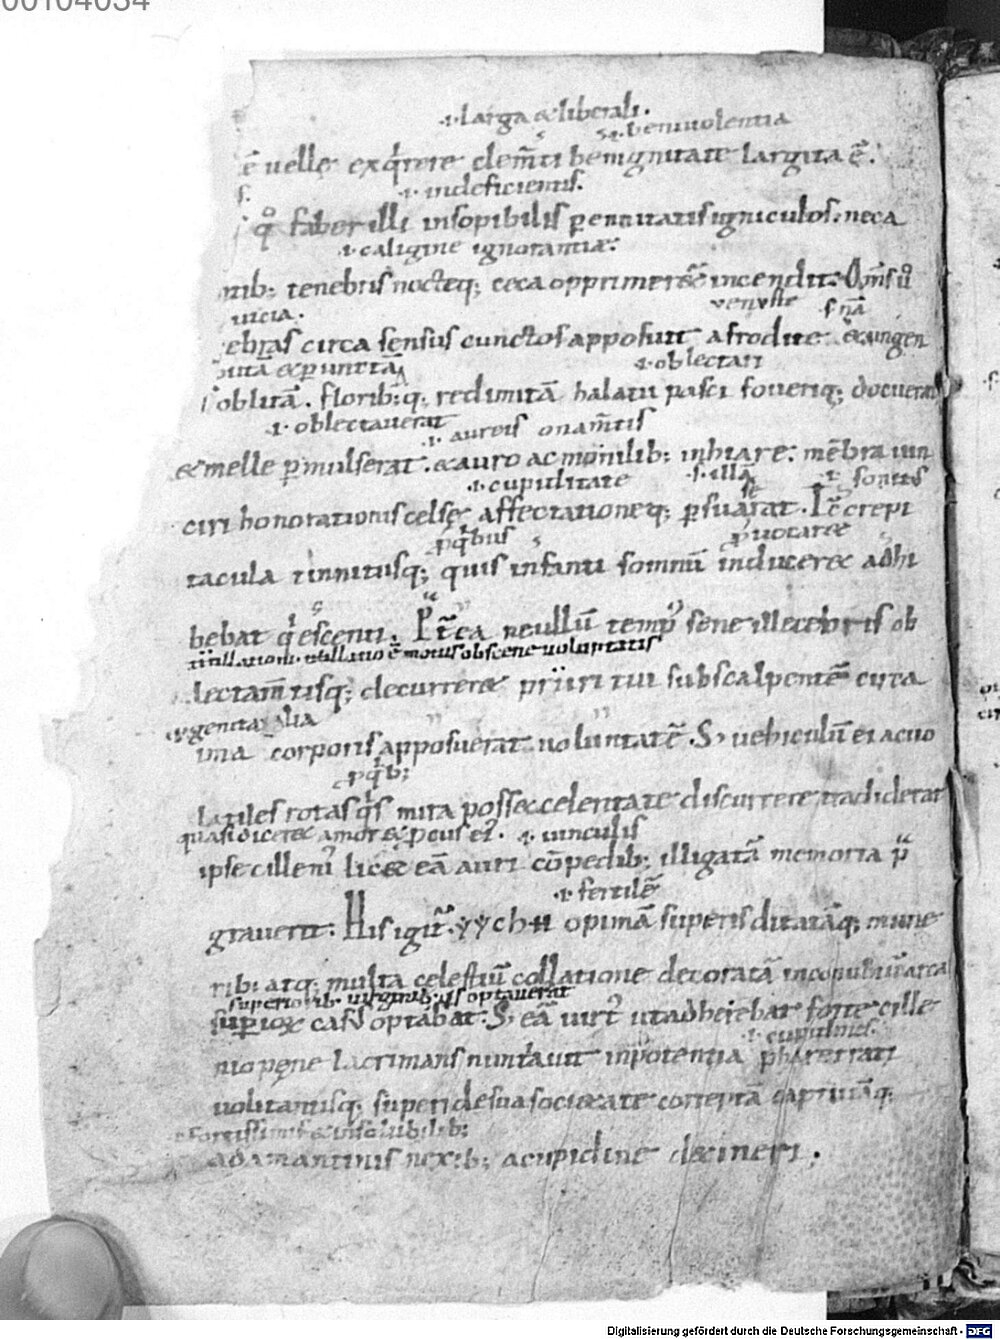 00104034
.i. larga & liberali.
.i. beniuolentia
ē uelle exq̇rere clem̄ti benignitate largita ē.
.i. indeficientis.
q° faber illi insopibilis ꝑennitatis igniculos. neca
.i. caligine ignorantiæ:
nib; tenebris nocteq; ceca opprimer& incendit.
uicia. uenuste
ebras circa sensus cunctos apposuit afrodite. & ungen
.i. oblectari
oblitā. floribꝫq; redimitā halatu pasci foueriq; docuerat
.i. oblectauerat .i. aureis onam̄tis
& melle ꝑmulserat. & auro ac monilib; inhiare. mēbra uin
.i. cupiditate .s. illā .i. sonitus
ciri honorationis celsę affectationeq; ꝑsuaserat. Tc̄ crepi
ꝓ q̇bus
tacula tinnitusq; quis infanti somnū inducer& adhi
bebat q̇escenti. Pt̄ea ne ullū temp; sine illecebris ob
titillationi. titillatio ē motus obscene uoluptatis
lectam̄tisq; decurrer& pruritui subscalpentē circa
.i. genitalia
ima corporis apposuerat uoluntatē. S; uehiculū ei ac uo
ꝓ q̇b;
latiles rotas q̇s mira poss& celeritate discurrere tradiderat
quasi dicer& .i. uinculis
ipse cilleni' lic& eā auri cōpedib; illigatā memoria p̄
.i. fertilē
grauerit. His igit̄ ΥΥCHN opimā superis ditatāq; mune
rib; atq; multa celestiū collatione decoratā in conubiū arca
superiorib; uirginib; optauerat
superiorꝝ casu optabat. S; eā uirt' ut adherebat forte cille
nio pęne lacrimans nuntiauit inpotentia pharetrati
uolitantisq; superi de sua societate correptā captiuāq;
fortissimis & insolubilib;
adamantinis nexib; a cupidine detineri.
Digitalisierung gefördert durch die Deutsche Forschungsgemeinschaft - DFG